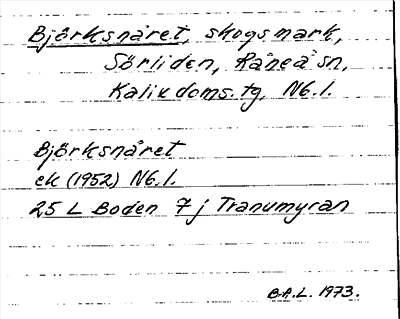 Björksnåret, skogsmark,
Sörliden, Råneå sn,
Kalix doms.tg, N6.l.
Björksnåret
ek (1952) N6.l.
25 L Boden 7 j Tranumyran
B.A.L. 1973.